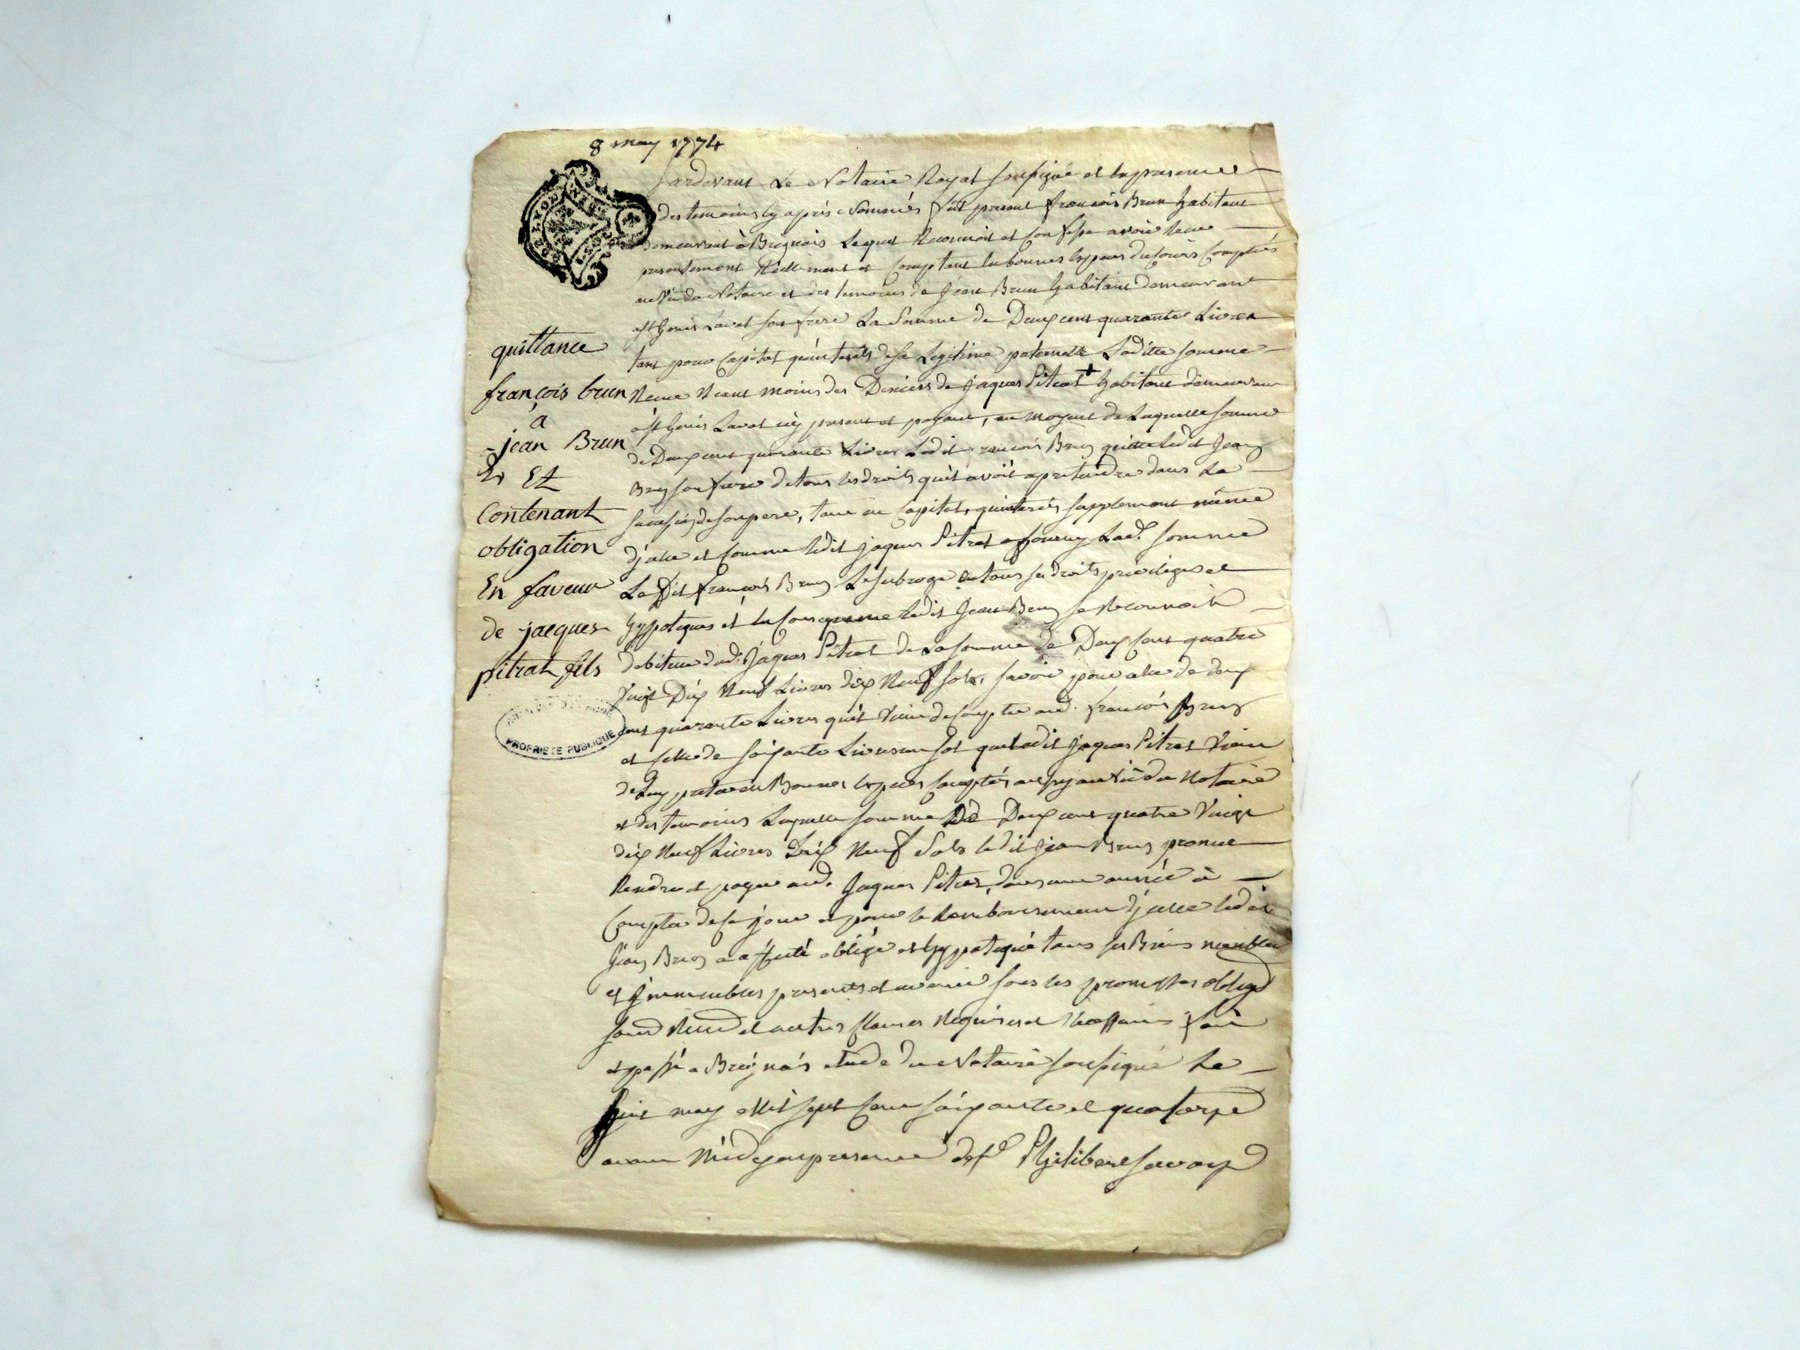 8 may 1774
Pardevant Le Notaire Royal soussigné et en presence
des temoins cy après Nommés fut present françois Brun habitant
demeurant à Brignais Lequel Reconnoit et Confesse avoir Receu
presentement Réellement et Comptant en bonnes especes du Cours Comptés
au vû du Notaire et des temoins de Jean Brun habitant demeurant
à st Genis Laval son frere La Somme de Deux cent quarante Livres
tant pour Capital qu'interêts de sa Legitime paternelle Laditte somme
Receue Neant moins des Deniers de Jaques Pitrat + habitant demeurant
à st Genis Laval icy present et payant, au moyent de Laquelle somme
de Deux cent quarante Livres Ledit françois Brun quitte Ledit Jean
Brun son frere de tous les droits qu'il avoit a pretendre dans La
de son pere, tant en Capital, qu'interês supplement même
d'jcelle et Comme Ledit Jaques Pitrat a fourny Lad. somme
Le Dit françois Brun Le subroge en tous ses droits privileges et
hypoteques et en Consequence Ledit Jean Brun se Reconnoit
debiteur dud. Jaques Pitrat de La somme de Deux Cent quatre
Vingt Dix Neuf Livres dix Neuf sols, savoir pour celle de deux
cent quarante Livres qu'il vient de Compter aud. françois Brun
et celle de soixante Livres un sol que Ledit Jaques Pitrat Vient
de Luy preter en Bonnes especes Comptés au vû du Notaire
et des temoins Laquelle somme De Deux cent quatre Vingt
dix Neuf Livres Dix Neuf Sols Ledit Jean Brun promet
Rendre et payer aud. Jaques Pitrat, dans une année à
Compter de ce jour et pour le Remboursement d'jcelle Ledit
Jean Brun a affecté obligé et hypotequé tous ses Biens meubles
et Jmmeubles presents et avenir sous les promesses oblig
soum Renon et autres Clauses Requises et Necessaires fait
et passé a Brignais etude du Notaire soussigné Le
huit may Mil sept Cent soixante et quatorze
avant Midy en presence de sr Philibert
quittance
françois brun
à
jean Brun
Et
Contenant
obligation
En faveur
de jacques
pitrat fils
PROPRIETE PUBLIQUE